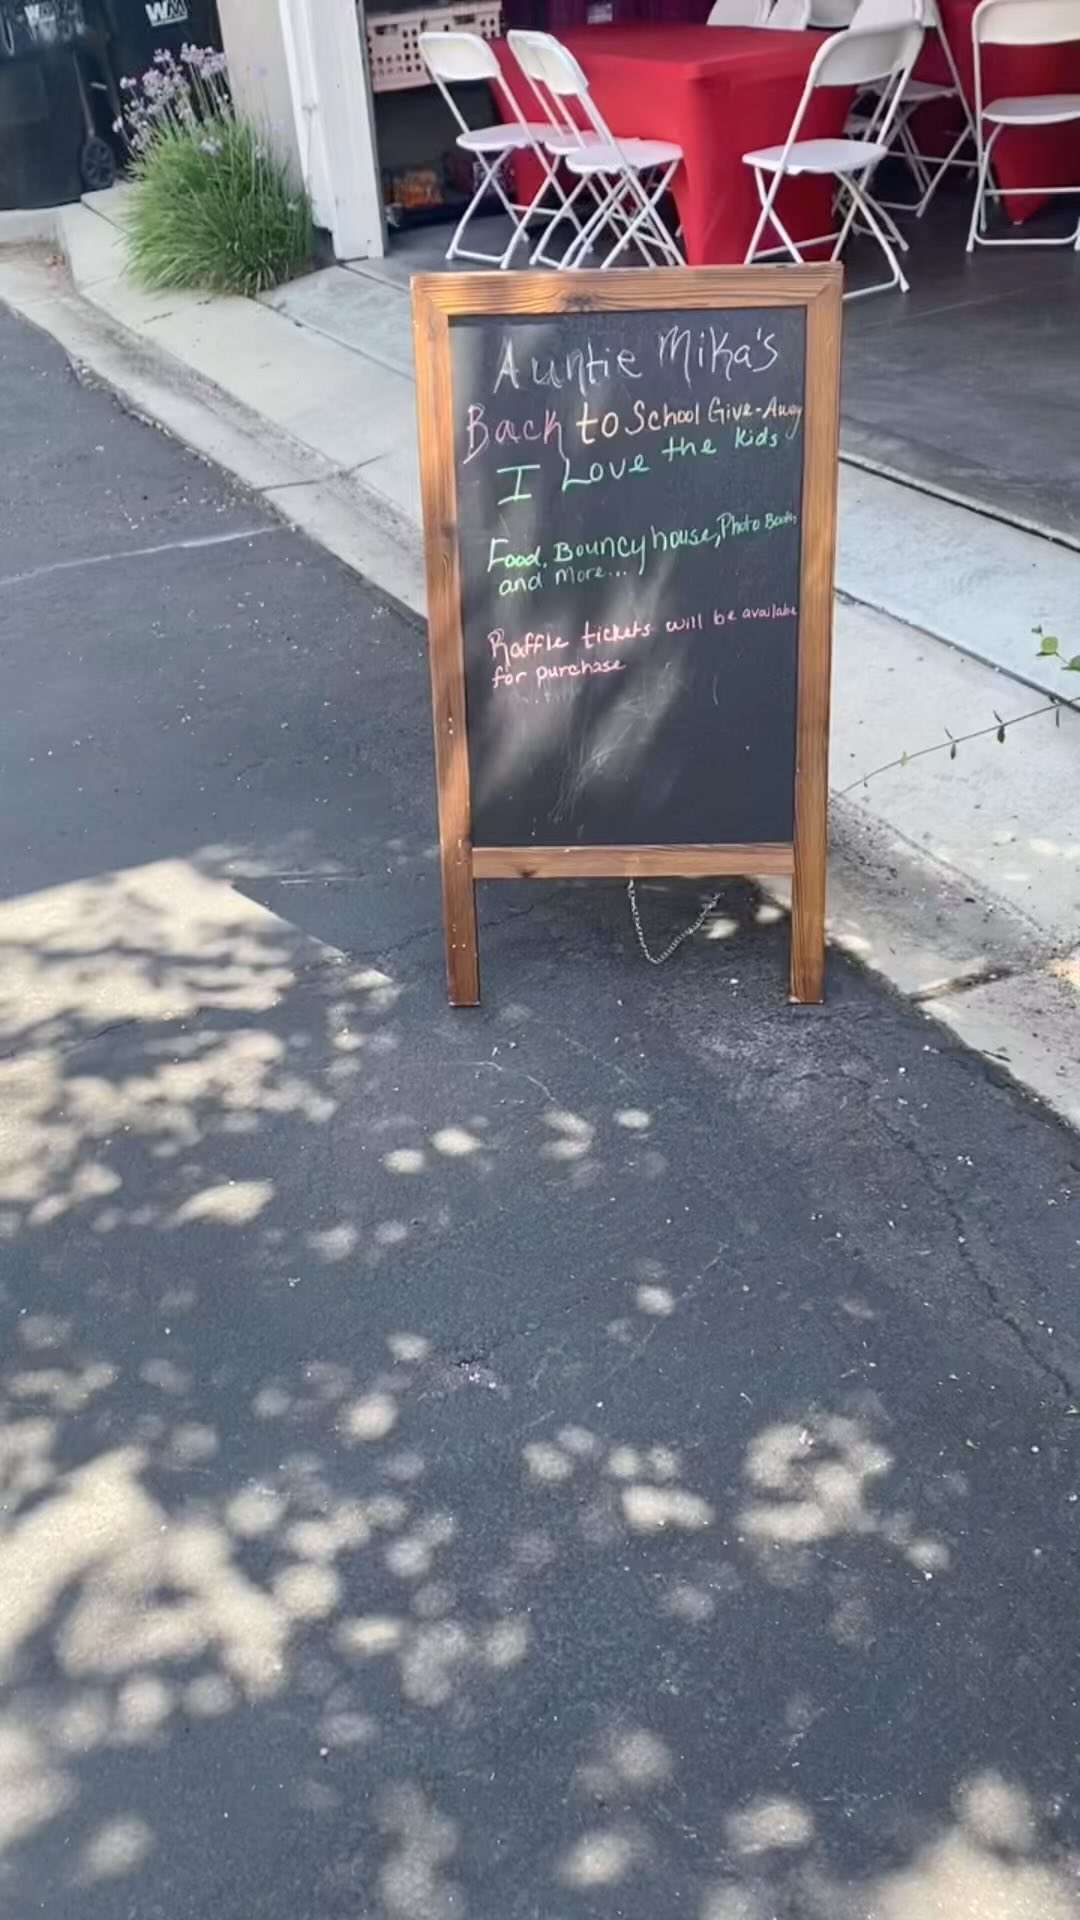 WM
WM
Auntie Mika's
Back to School Give-Away
I Love the kids
Food, Bouncy house, Photo Booth
and more...
Raffle tickets will be availabe
for purchase